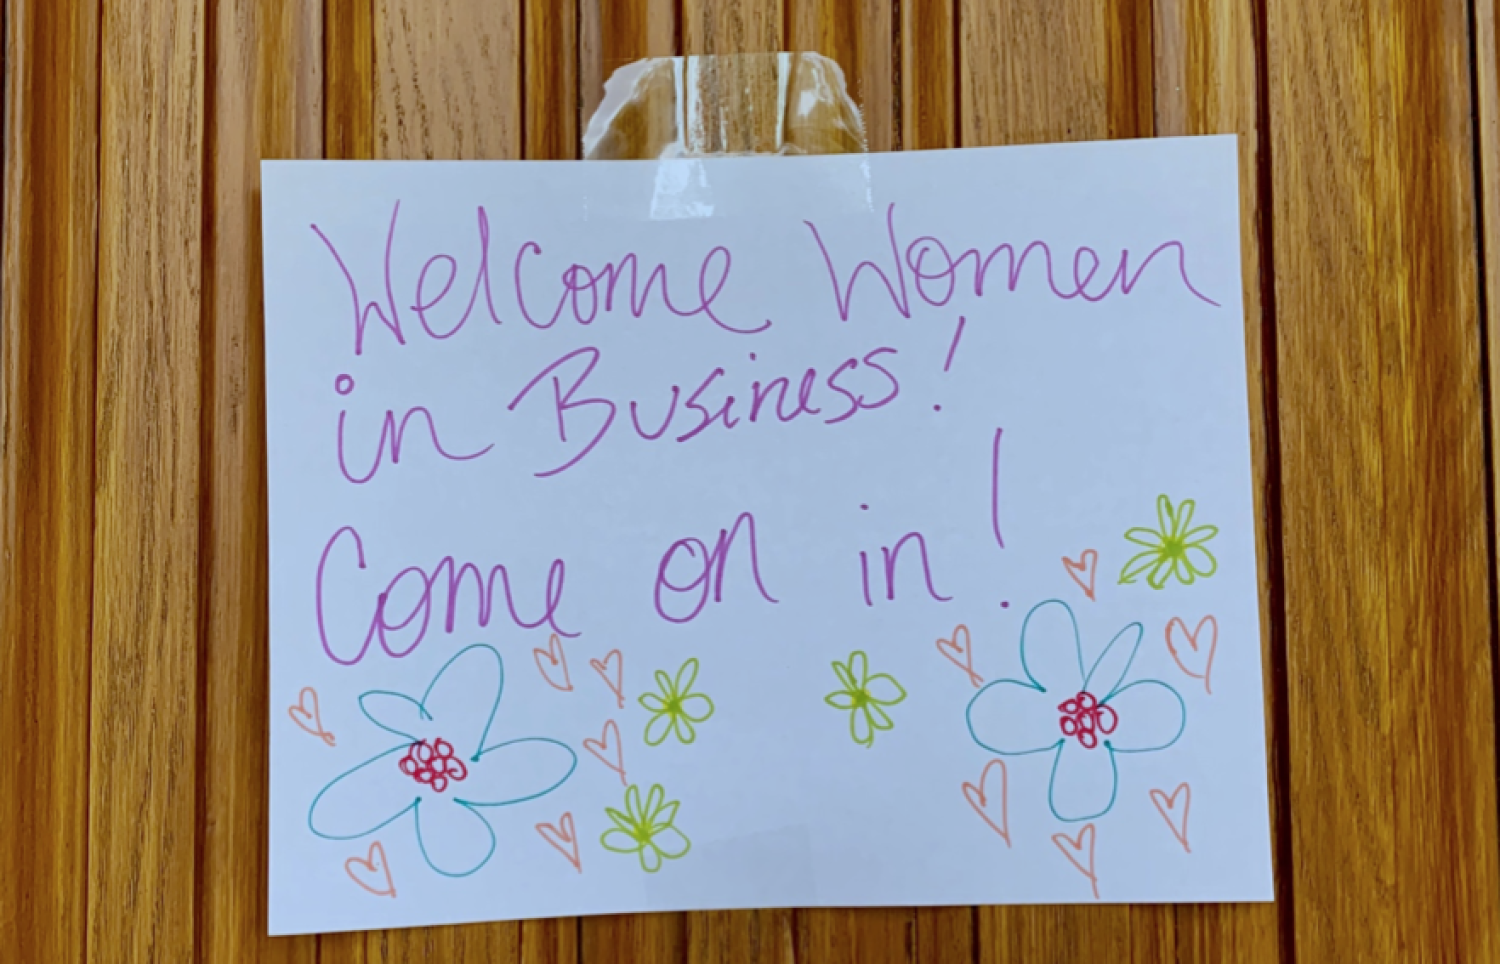 Welcome Women
in Business!
Come on in!